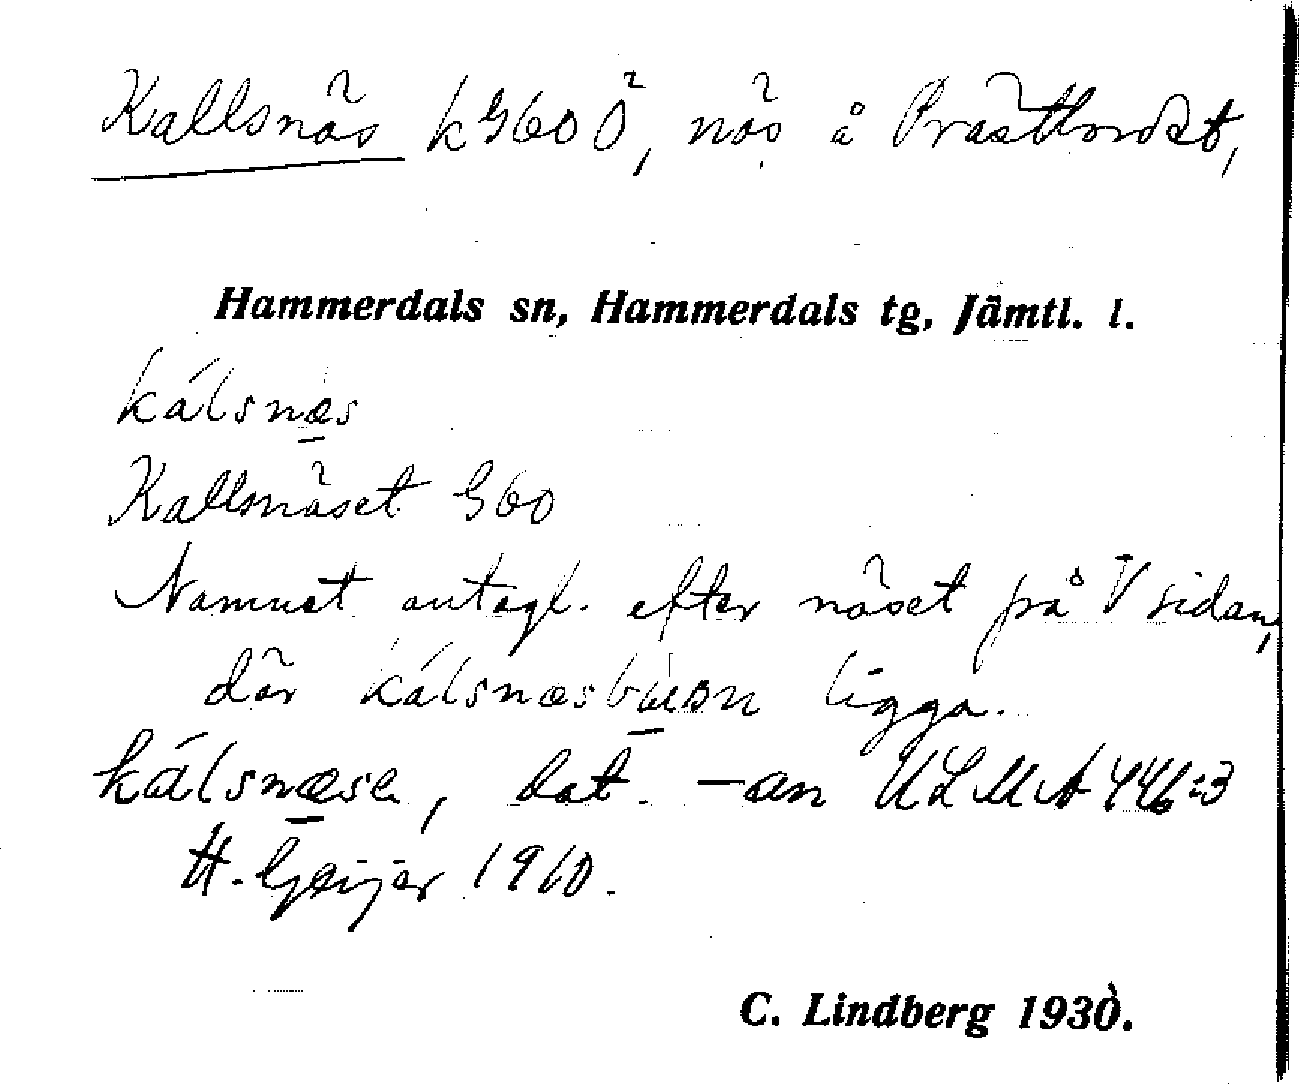 Kallsnäs k G60 Ö, näs å Prästbordet,
Hammerdals sn, Hammerdals tg, Jämtl. l.
kálsnæs
Kallsnäset G60
Namnet antagl. efter näset på V sidan,
där kálsnæsbuan ligga.
kálsnæse, dat. -an ULMA 446:3
H. Geijer 1910.
C. Lindberg 1930.